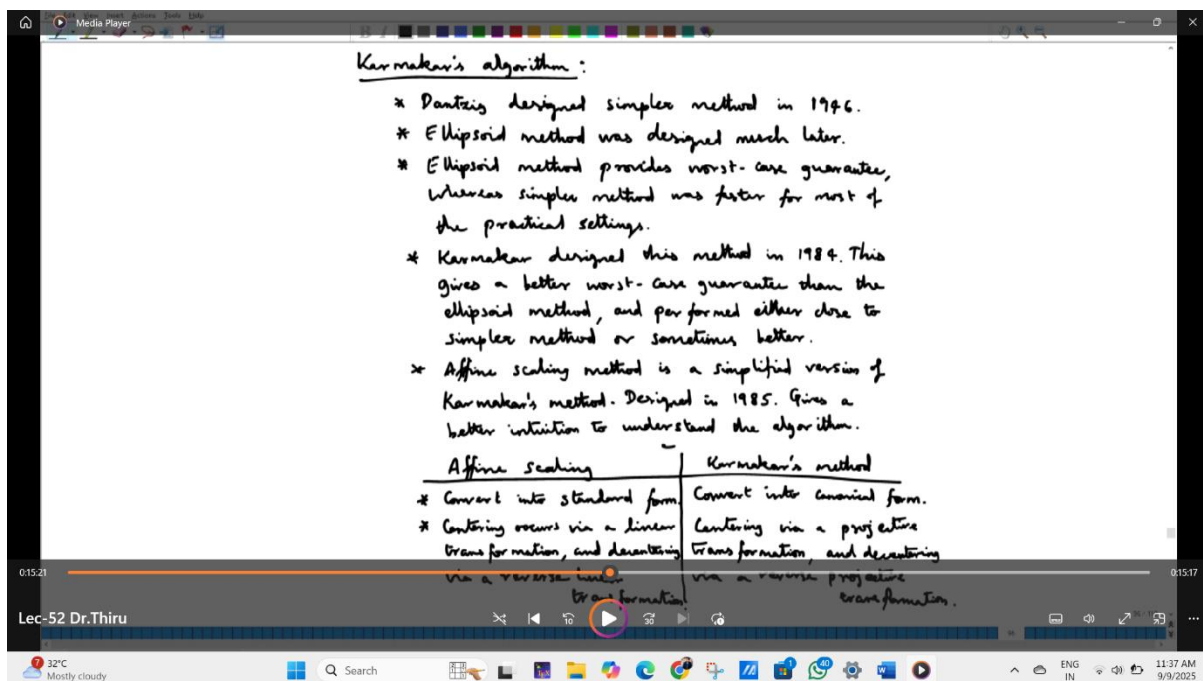 File Edit View Insert Actions Tools Help
Media Player
Karmakar's algorithm :
* Dantzig designed simplex method in 1946.
* Ellipsoid method was designed much later.
* Ellipsoid method provides worst-case guarantee,
whereas simplex method was faster for most of
the practical settings.
* Karmakar designed this method in 1984. This
gives a better worst-case guarantee than the
ellipsoid method, and performed either close to
simplex method or sometimes better.
* Affine scaling method is a simplified version of
Karmakar's method. Designed in 1985. Gives a
better intuition to understand the algorithm.
Affine scaling
* Convert into standard form.
* Centering occurs via a linear
transformation, and decentering
via a reverse linear
transformation.
Karmakar's method
Convert into canonical form.
Centering via a projective
transformation, and decentering
via a reverse projective
transformation.
0:15:21
0:15:17
Lec-52 Dr.Thiru
10
30
7
32°C
Mostly cloudy
Search
40
ENG
IN
11:37 AM
9/9/2025